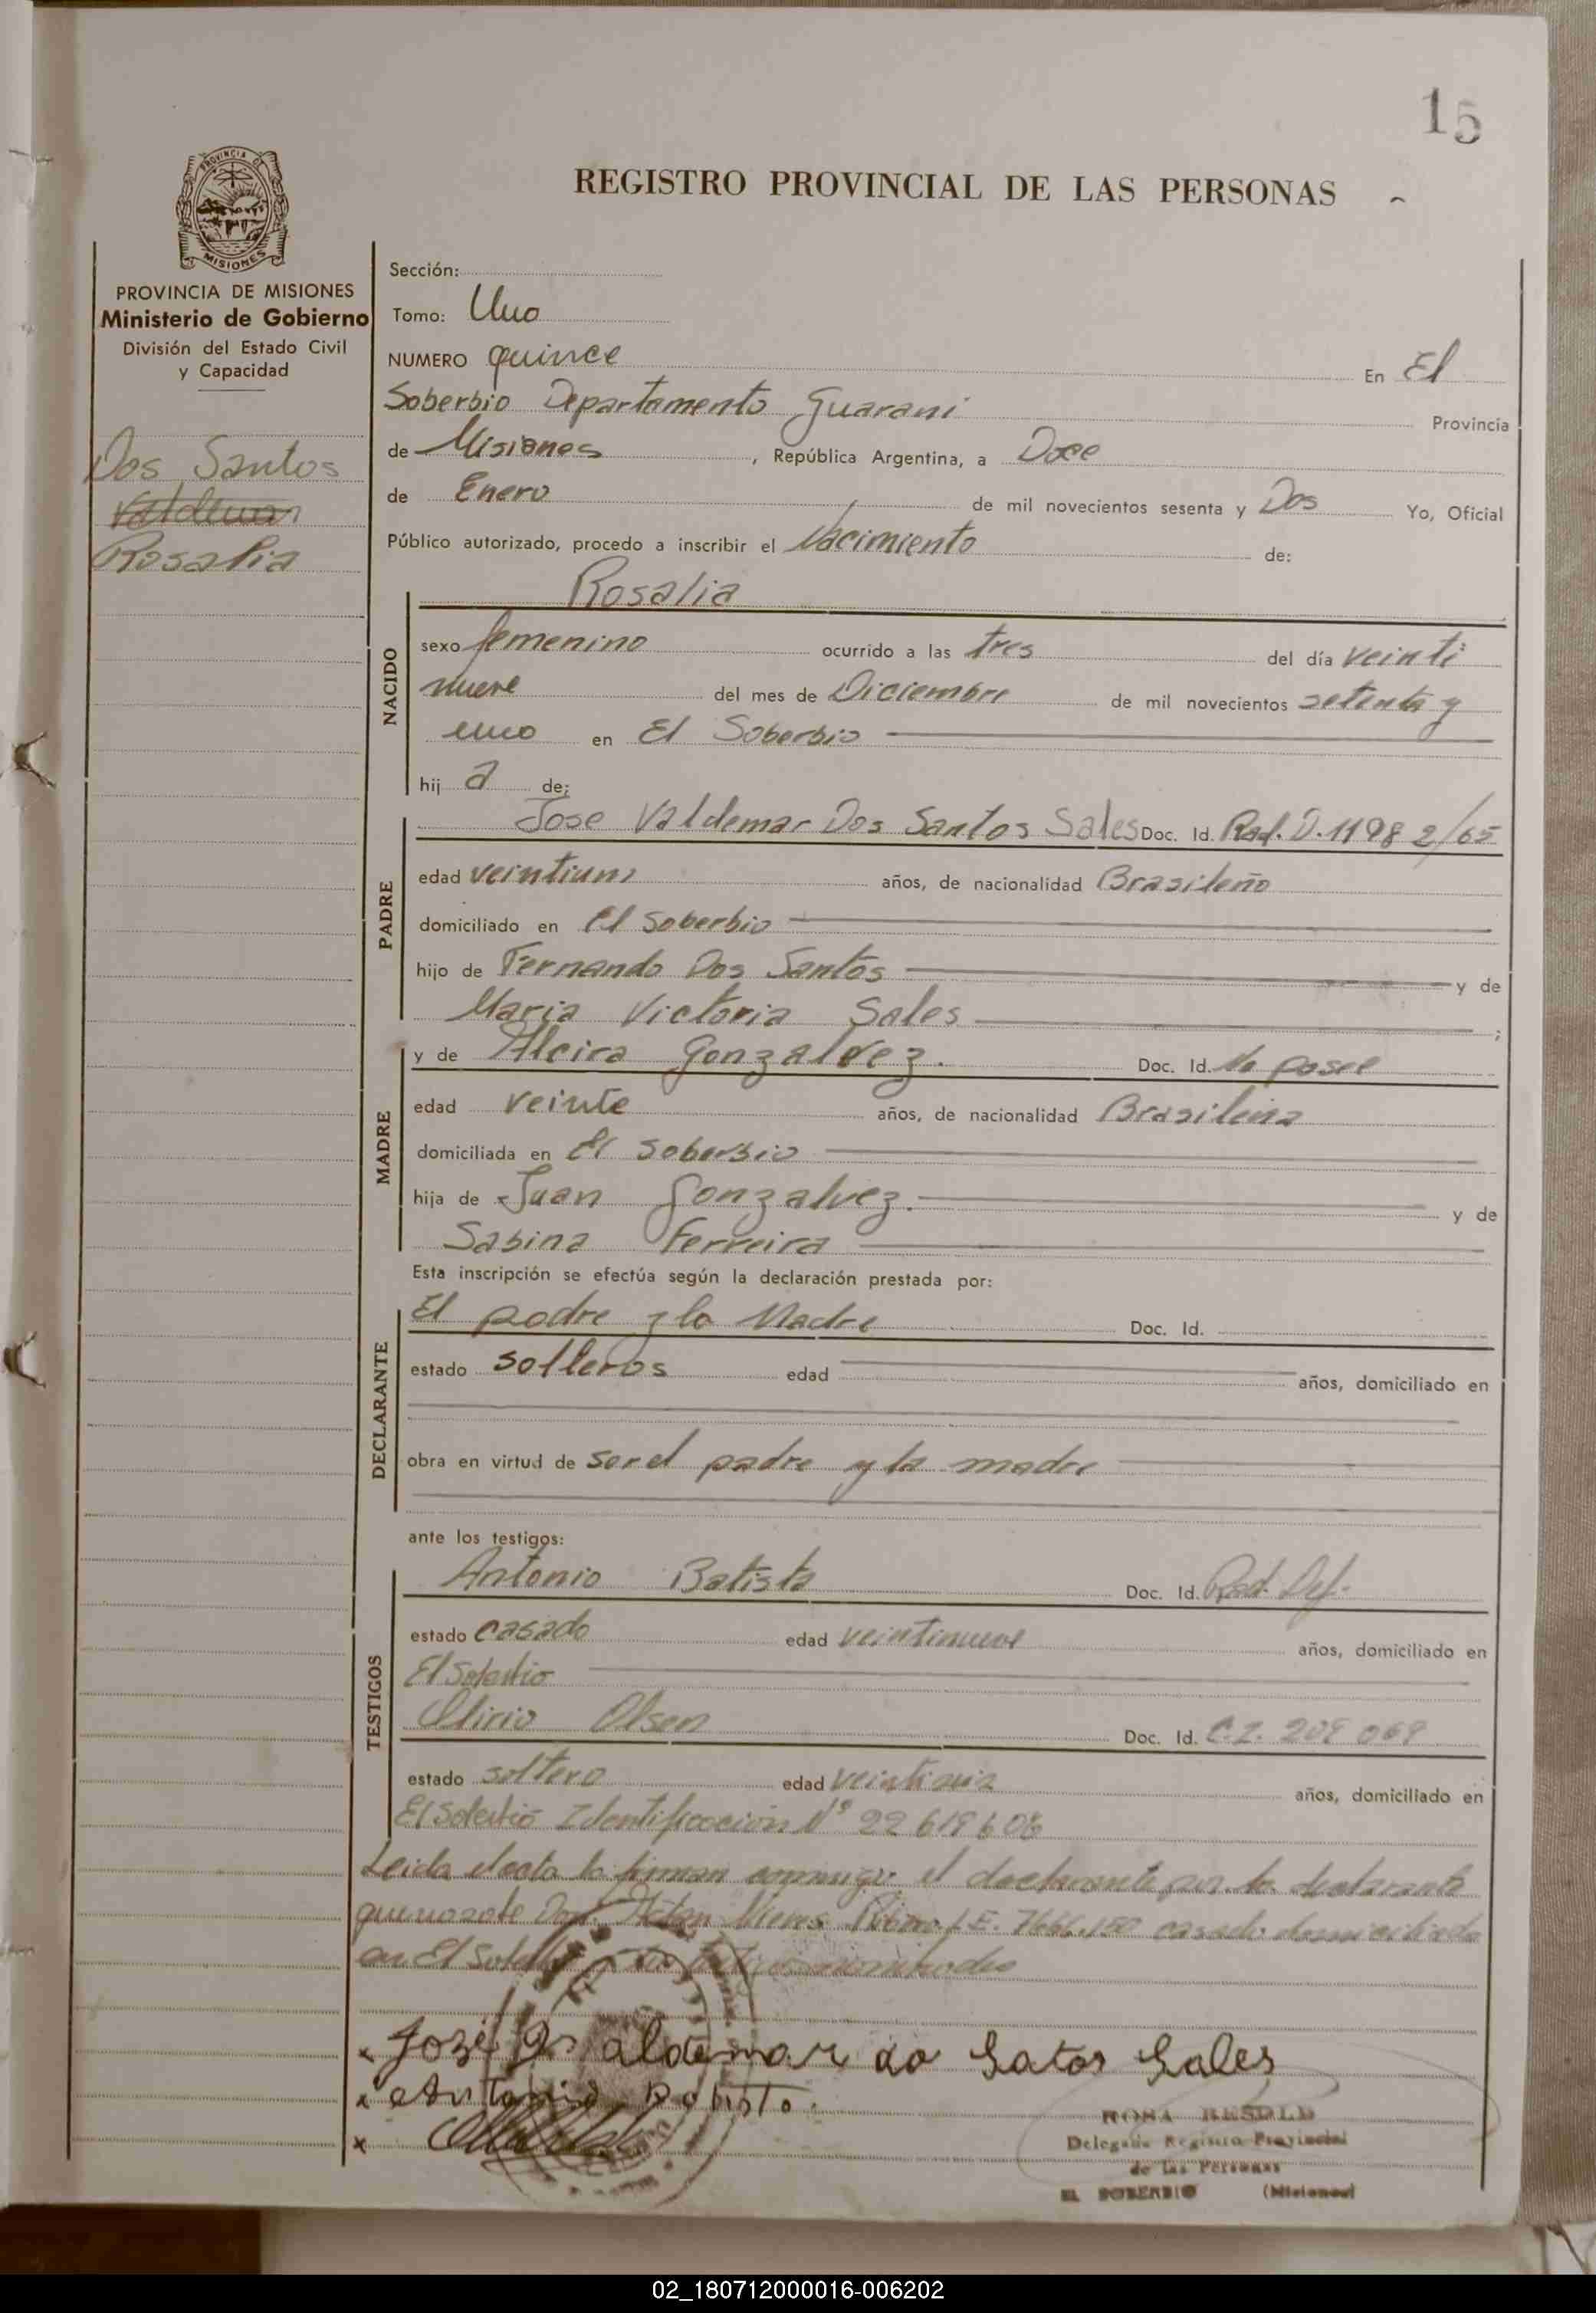 15
REGISTRO PROVINCIAL DE LAS PERSONAS
PROVINCIA DE MISIONES
PROVINCIA DE MISIONES
Ministerio de Gobierno
División del Estado Civil
y Capacidad
Dos Santos
Valdemar
Rosalia
Sección:
Tomo: Uno
NUMERO quince En El
Soberbio Departamento Guarani Provincia
de Misiones, República Argentina, a Doce
de Enero de mil novecientos sesenta y Dos Yo, Oficial
Público autorizado, procedo a inscribir el Nacimiento de:
NACIDO
Rosalia
sexo femenino ocurrido a las tres del día veinti
nueve del mes de Diciembre de mil novecientos setenta y
uno en El Soberbio
hij a de:
PADRE
Jose Valdemar Dos Santos Sales Doc. Id. Rad. D. 11982/65
edad veintiun años, de nacionalidad Brasileño
domiciliado en El Soberbio
hijo de Fernando Dos Santos y de
Maria Victoria Sales ;
MADRE
y de Alcira Gonzalvez. Doc. Id. No posee
edad veinte años, de nacionalidad Brasileña
domiciliada en El Soberbio
hija de Juan Gonzalvez. y de
Sabina Ferreira
Esta inscripción se efectúa según la declaración prestada por:
DECLARANTE
El padre y la Madre Doc. Id.
estado solteros edad años, domiciliado en
obra en virtud de ser el padre y la madre
ante los testigos:
TESTIGOS
Antonio Batista Doc. Id. Rad. Def.
estado casado edad veintinueve años, domiciliado en
El Soberbio
Olirio Olsen Doc. Id. C.I. 209 069
estado soltero edad años, domiciliado en
El Soberbio Identificación Nº 22 619 608
Leida el acta la firman conmigo el declarante por la declarante
que no lo Don Vieras L.E. 7.666.150 casado domiciliado
en El Soberbio
x José Valdemar do Satos Sales
x Antonio Batista.
x
ROSA RESDLE
Delegada Registro Provincial
de las Personas
EL SOBERBIO (Misiones)
02_180712000016-006202